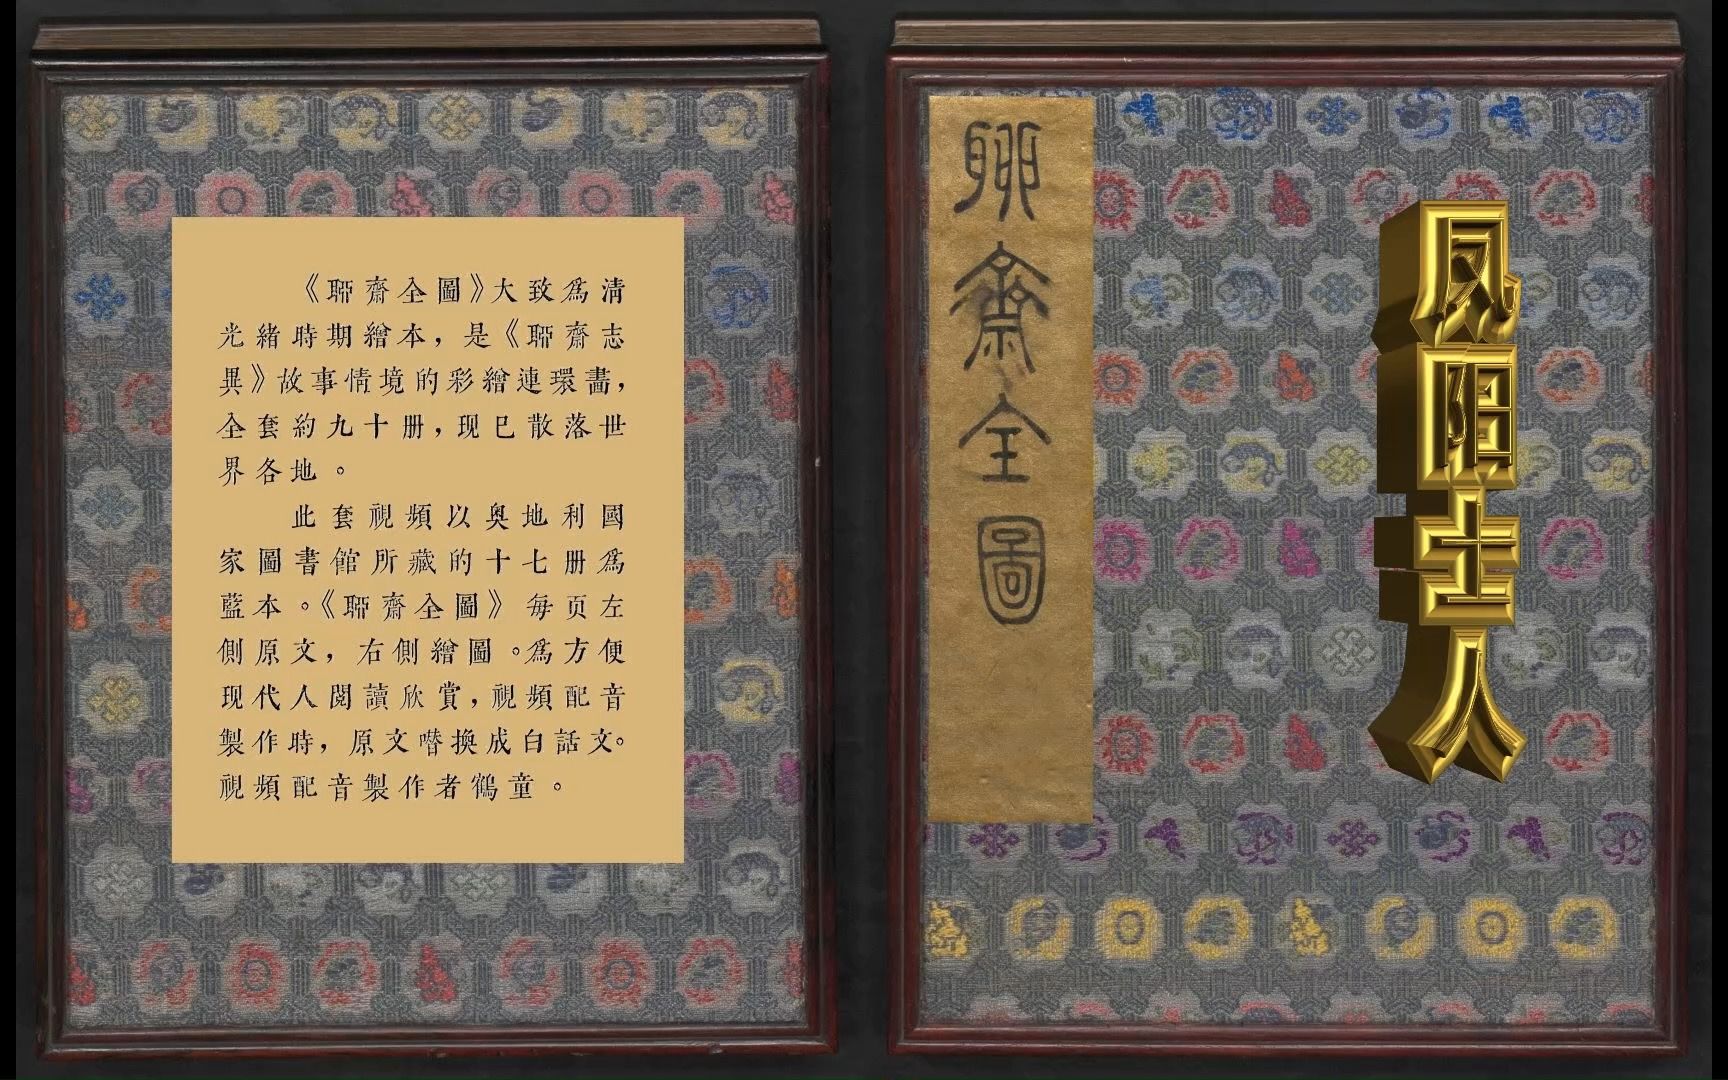 《聊齋全圖》大致爲清
光緒時期繪本，是《聊齋志
異》故事情境的彩繪連環畵，
全套約九十册，现巳散落世
界各地。
此套視頻以奥地利國
家圖書館所藏的十七册爲
藍本。《聊齋全圖》每页左
側原文，右側繪圖。爲方便
现代人閱讀欣賞，視頻配音
製作時，原文換成白話文。
視頻配音製作者鶴童。
聊齋全圖
凤阳士人